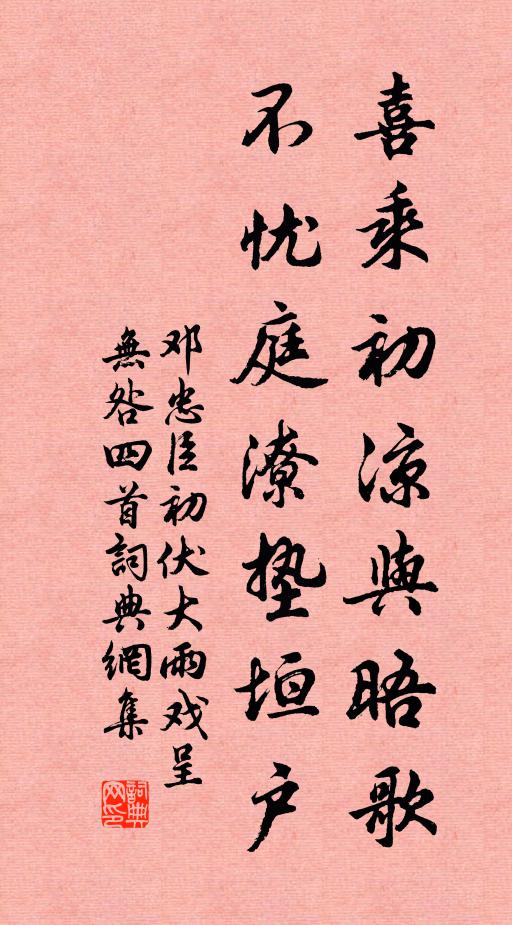 喜乘初凉與晤歌
不忧庭潦墊垣户
邓忠臣初伏大雨戏呈
無咎四首詞典網集
詞典網印